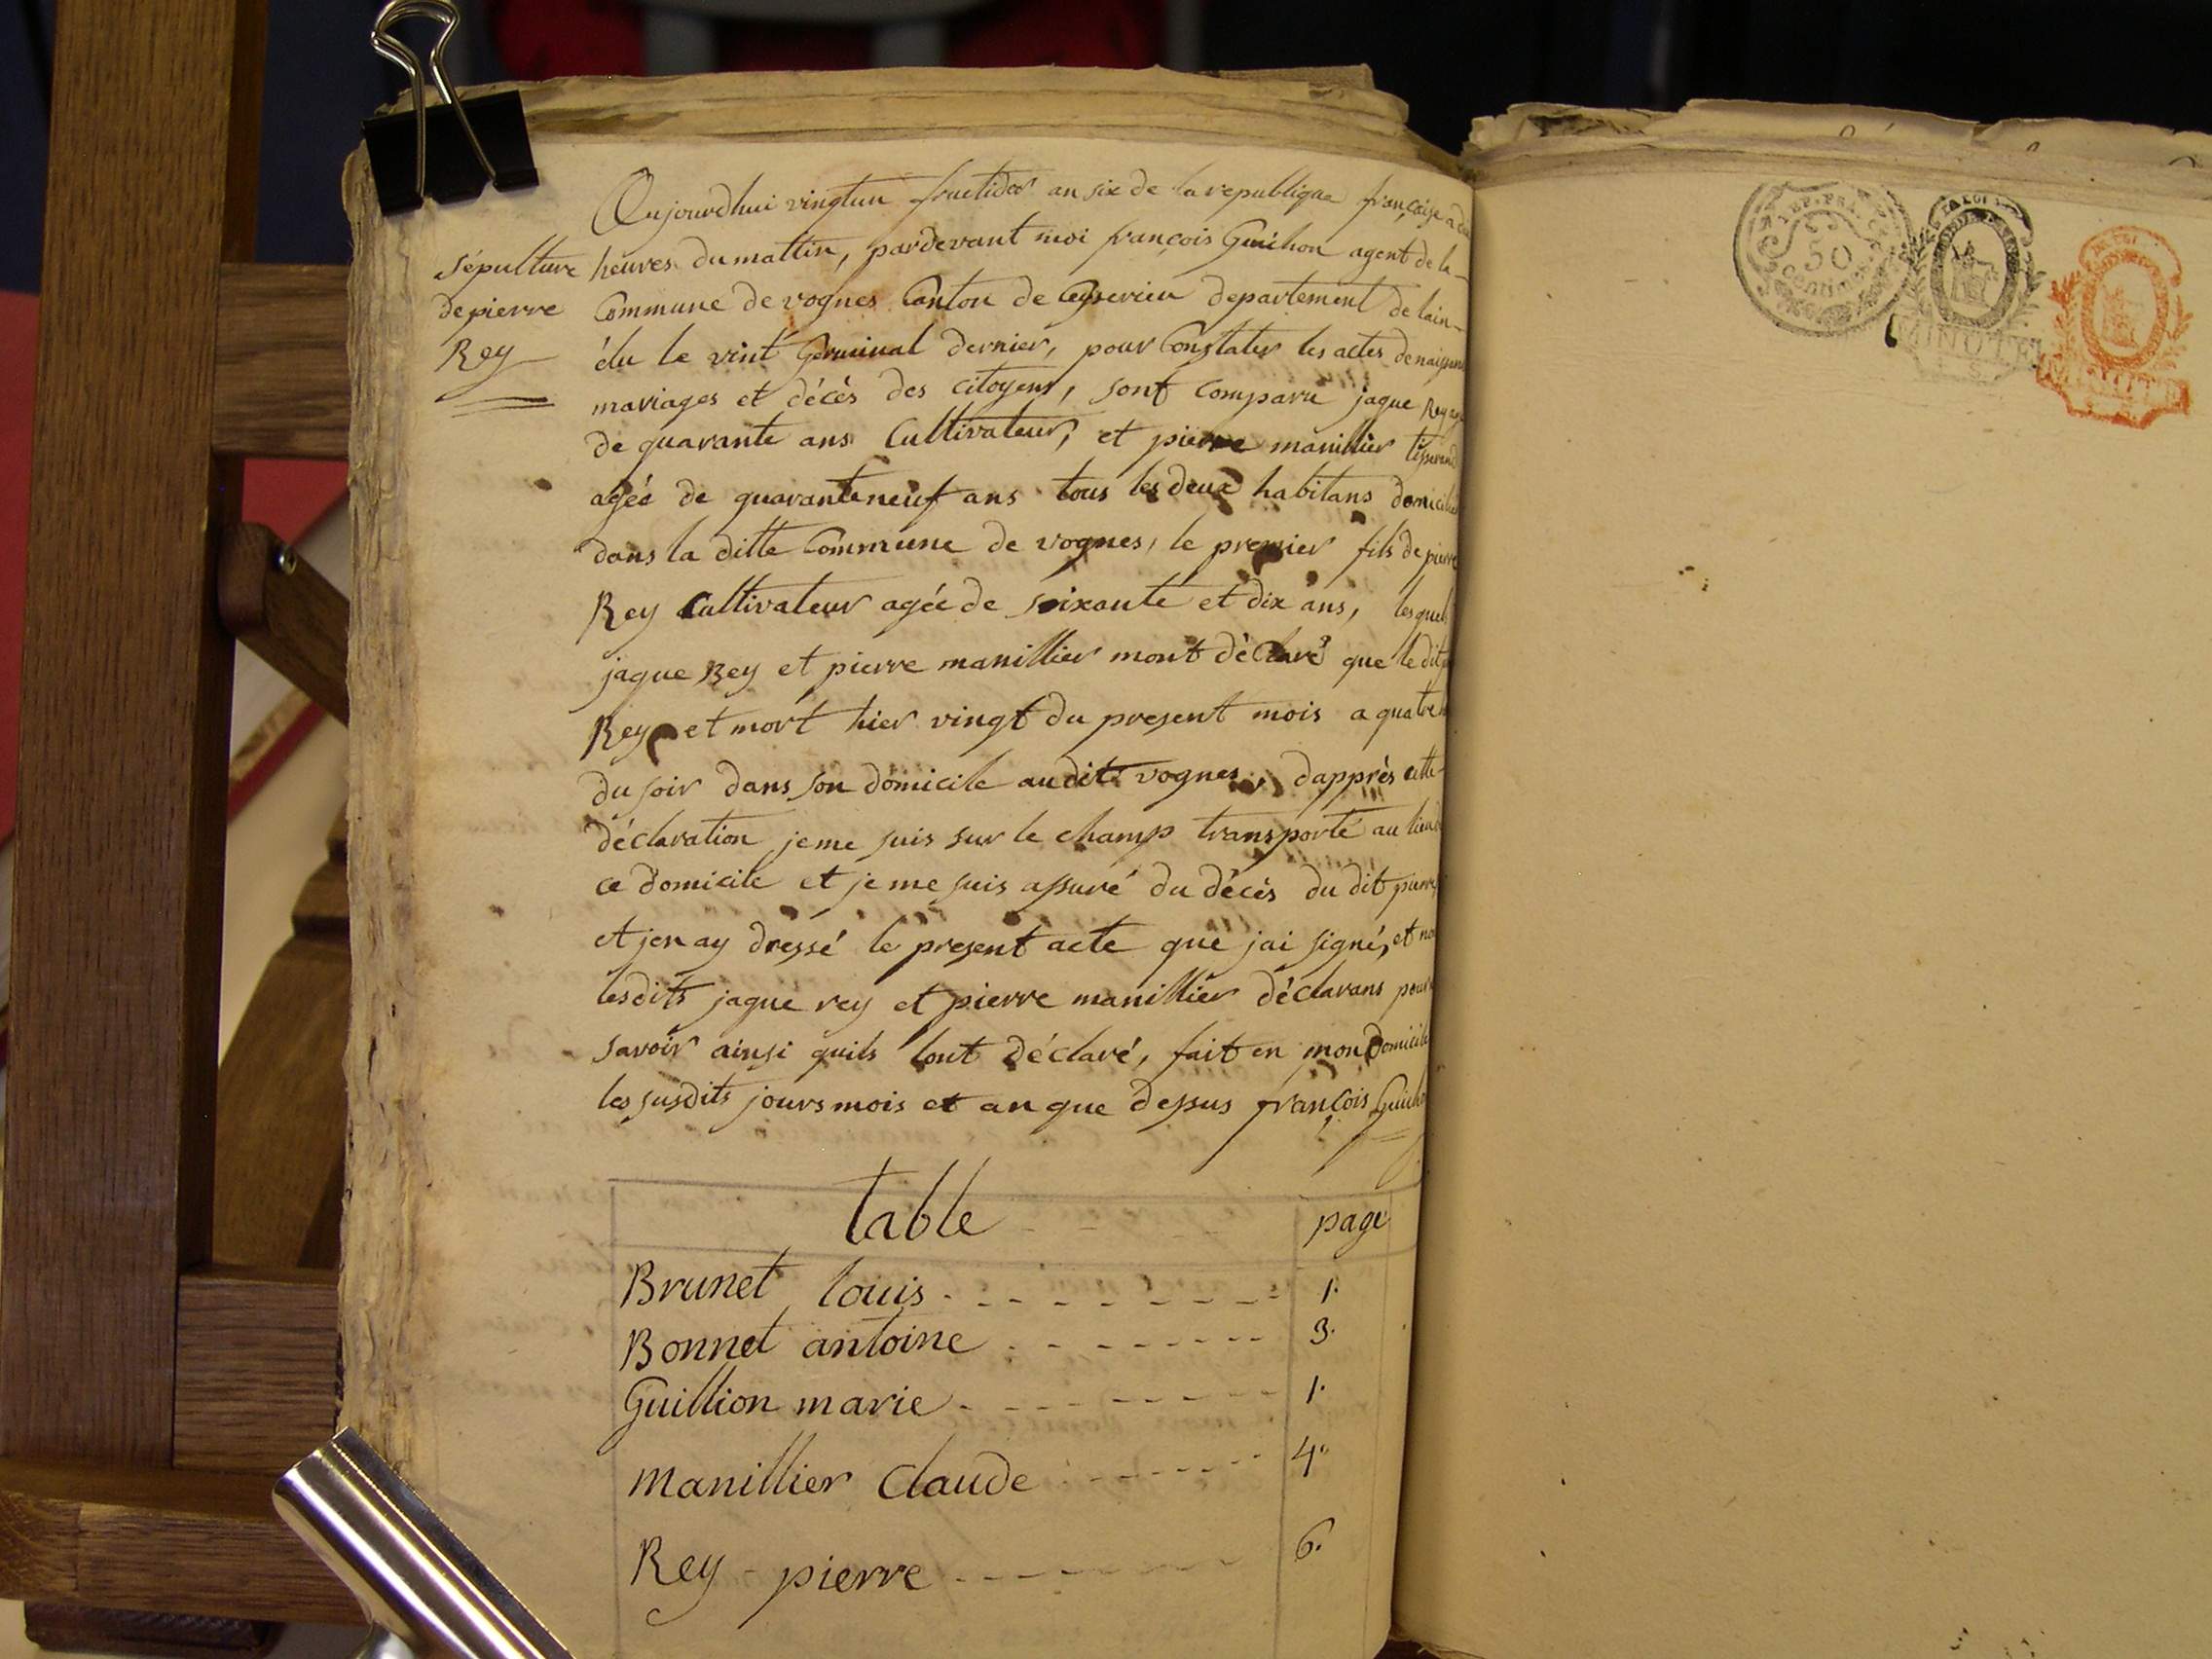 Aujourdhui vingtun fructidor an six de la republique françoise a
Sépulture
de pierre
Rey
heures du mattin, pardevant moi françois Guihon agent de la
Commune de vognes Canton de Ceyserieu departement de lain
élu le vint Germinal dernier, pour Constater les actes de
mariages et décès des citoyens, sont comparu jaque Rey
de quarante ans Cultivateur, et pierre manillier
agée de quaranteneuf ans tous les deux habitans
dans la ditte Commune de vognes, le premier fils de pierre
Rey Cultivateur agée de soixante et dix ans, lesquels
jaque Rey et pierre manillier mont déClaré que le dit
Rey et mort hier vingt du present mois a quatre
du soir dans son domicile audit vognes, dapprès cette
déclaration je me suis sur le champ transporté au lieu
ce domicile et je me suis assuré du décès du dit pierre
et jen ay dressé le present acte que jai signé, et
lesdits jaque rey et pierre manillier déclarans
savoir ainsi quils lont déclaré, fait en mon Domicile
les susdits jours mois et an que dessus françois
table page
Brunet louis 1.
Bonnet antoine 3.
Guillion marie 1.
Manillier Claude 4.
Rey pierre 6.
REP. FRA.
50
Centim
LA LOI
MINUTE
MINUTE